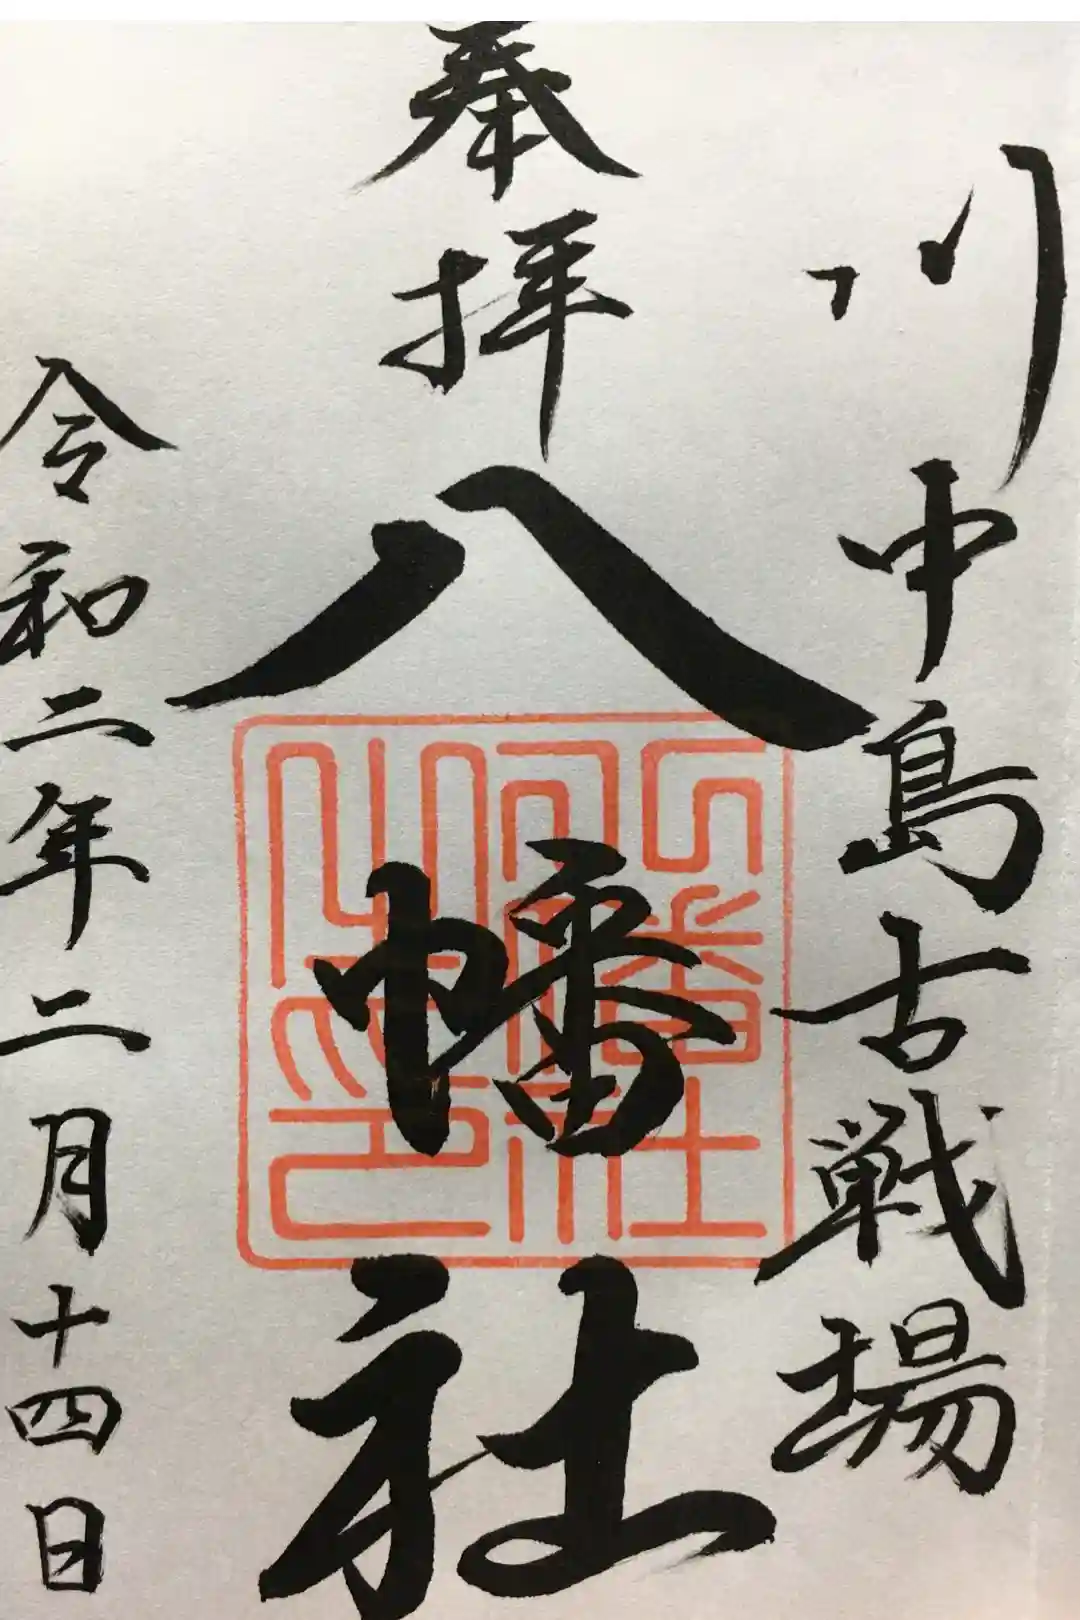 川中島古戦場
奉拝
八幡社
八幡社
之印
令和二年二月十四日